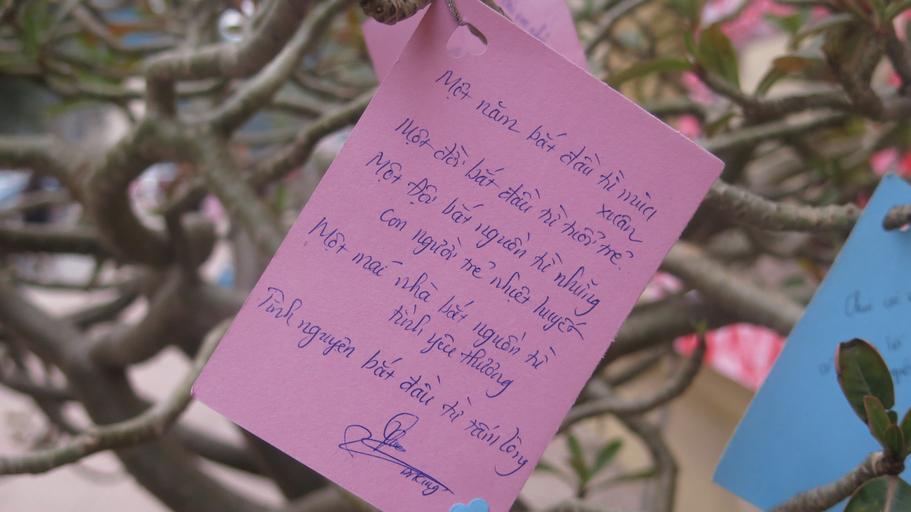 Một năm bắt đầu từ mùa
xuân
Một đời bắt đầu từ tuổi trẻ.
Một Đội bắt nguồn từ những
con người trẻ nhiệt huyết
Một mái nhà bắt nguồn từ
tình yêu thương
Tình nguyện bắt đầu từ tấm lòng